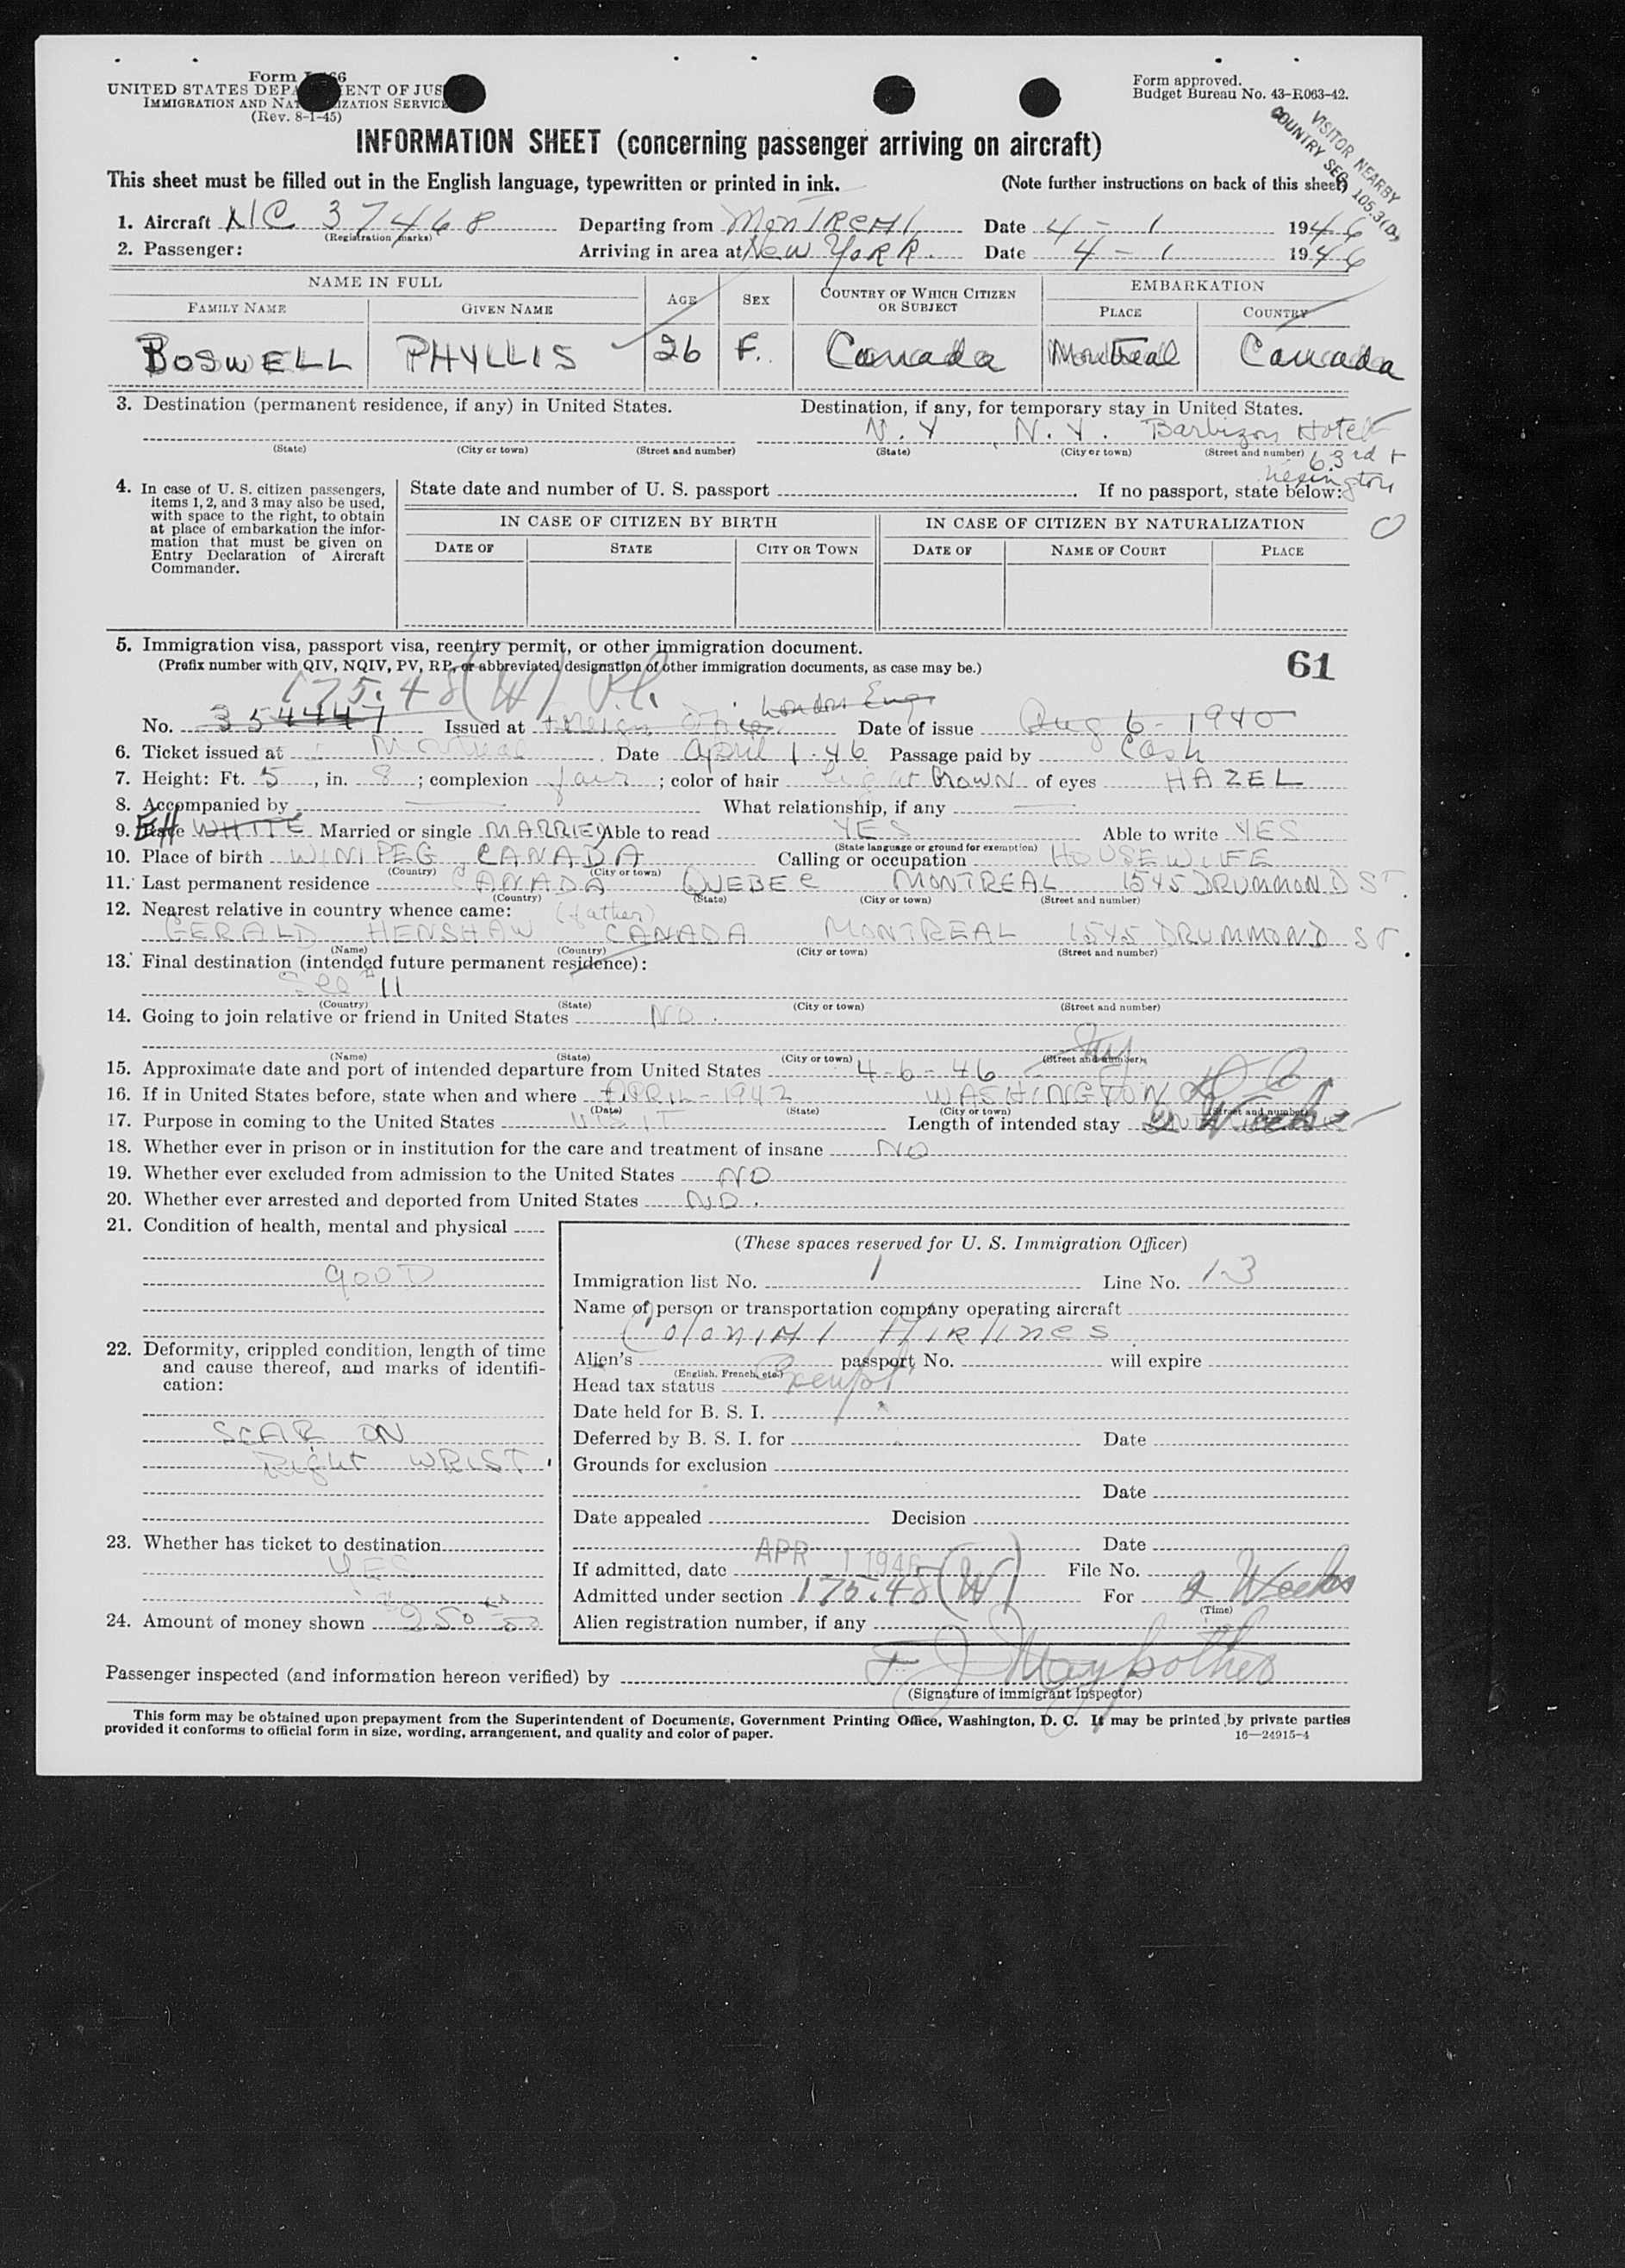 Form
UNITED STATES DEPA ENT OF JUS
IMMIGRATION AND NAT IZATION SERVICE
(Rev. 8-1-45)
Form approved.
Budget Bureau No. 43-R063-42.
VISITOR NEARBY
COUNTRY SEC. 105.3(D)
INFORMATION SHEET (concerning passenger arriving on aircraft)
This sheet must be filled out in the English language, typewritten or printed in ink. (Note further instructions on back of this sheet)
1. Aircraft NC 37468 Departing from MonTReAl Date 4 - 1 1946
(Registration marks)
2. Passenger: Arriving in area at New YoRK. Date 4 - 1 1946
NAME IN FULL AGE SEX COUNTRY OF WHICH CITIZEN OR SUBJECT EMBARKATION
FAMILY NAME GIVEN NAME PLACE COUNTRY
BOSWELL PHYLLIS 26 F. Canada Montreal Canada
3. Destination (permanent residence, if any) in United States. Destination, if any, for temporary stay in United States.
N.Y N.Y. Barbizon Hotel
(State) (City or town) (Street and number) (State) (City or town) (Street and number) 63rd +
Lexington
4. In case of U. S. citizen passengers, items 1, 2, and 3 may also be used, with space to the right, to obtain at place of embarkation the information that must be given on Entry Declaration of Aircraft Commander.
State date and number of U. S. passport . If no passport, state below:
IN CASE OF CITIZEN BY BIRTH IN CASE OF CITIZEN BY NATURALIZATION
DATE OF STATE CITY OR TOWN DATE OF NAME OF COURT PLACE
5. Immigration visa, passport visa, reentry permit, or other immigration document.
(Prefix number with QIV, NQIV, PV, RP, or abbreviated designation of other immigration documents, as case may be.)
61
175.48(W)
London Eng.
No. 354447 Issued at Foreign Office Date of issue Aug 6 - 1940
6. Ticket issued at Montreal Date April 1-46 Passage paid by Cash
7. Height: Ft. 5, in. 8; complexion fair; color of hair light BROWN of eyes HAZEL
8. Accompanied by What relationship, if any
9. Race WHITE Married or single MARRIED Able to read YES Able to write YES
(State language or ground for exemption)
10. Place of birth WINIPEG CANADA Calling or occupation HOUSEWIFE
(Country) (City or town)
11. Last permanent residence CANADA QUEBEC MONTREAL 1545 DRUMMOND ST.
(Country) (State) (City or town) (Street and number)
12. Nearest relative in country whence came: (father)
GERALD HENSHAW CANADA MONTREAL 1545 DRUMMOND ST.
(Name) (Country) (City or town) (Street and number)
13. Final destination (intended future permanent residence):
See #11
(Country) (State) (City or town) (Street and number)
14. Going to join relative or friend in United States NO.
(Name) (State) (City or town) (Street and number)
15. Approximate date and port of intended departure from United States 4-6-46
16. If in United States before, state when and where APRIL - 1942 WASHINGTON D C
(Date) (State) (City or town) (Street and number)
17. Purpose in coming to the United States VISIT Length of intended stay 2 Weeks
18. Whether ever in prison or in institution for the care and treatment of insane NO
19. Whether ever excluded from admission to the United States NO
20. Whether ever arrested and deported from United States NO.
21. Condition of health, mental and physical
GOOD
22. Deformity, crippled condition, length of time and cause thereof, and marks of identification:
SCAR ON
Right WRIST.
23. Whether has ticket to destination
YES
24. Amount of money shown $250
(These spaces reserved for U. S. Immigration Officer)
Immigration list No. 1 Line No. 13
Name of person or transportation company operating aircraft
ColoniAl AiRlines
Alien's passport No. will expire
(English, French, etc.)
Head tax status Exempt
Date held for B. S. I.
Deferred by B. S. I. for Date
Grounds for exclusion
Date
Date appealed Decision
Date
If admitted, date APR 1 1946 File No.
Admitted under section 175.48(W) For 2 Weeks
(Time)
Alien registration number, if any
Passenger inspected (and information hereon verified) by
(Signature of immigrant inspector)
This form may be obtained upon prepayment from the Superintendent of Documents, Government Printing Office, Washington, D. C. It may be printed by private parties
provided it conforms to official form in size, wording, arrangement, and quality and color of paper. 16—24915-4